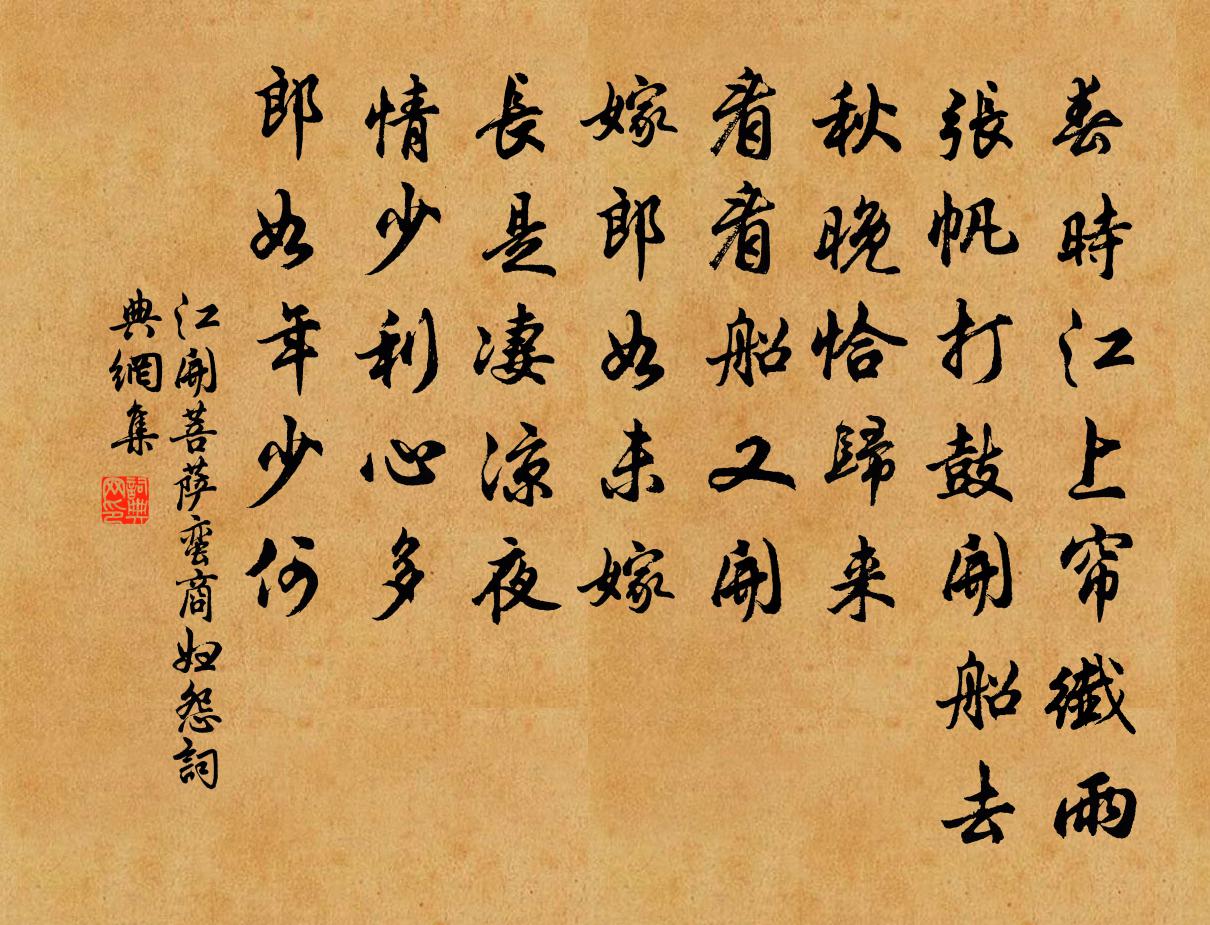 春時江上帘纖雨
張帆打鼓開船去
秋晚恰歸来
看看船又開
嫁郎如未嫁
長是凄涼夜
情少利心多
郎如年少何
江開菩薩蛮商妇怨詞
典網集
詞典
网印